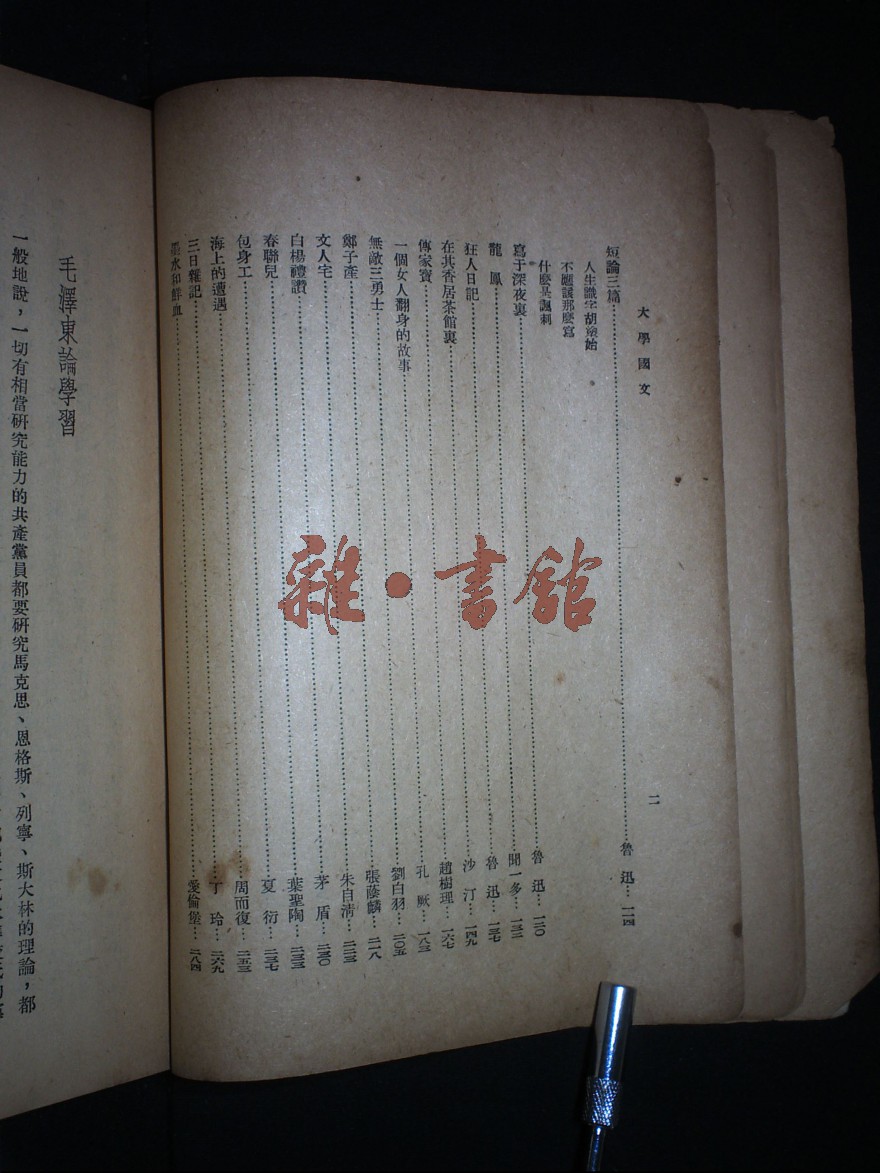 大學國文
二
短論三篇……魯 迅…一一四
人生識字胡塗始
不應該那麼寫
什麼是諷刺
寫于深夜裏……魯 迅…一二〇
龍 鳳……聞一多…一三二
狂人日記……魯 迅…一三七
在其香居茶館裏……沙 汀…一四九
傳家寶……趙樹理…一六七
一個女人翻身的故事……孔 厥…一八三
無敵三勇士……劉白羽…二〇五
鄭子產……張蔭麟…二一八
文人宅……朱自清…二二三
白楊禮讚……茅 盾…二三〇
春聯兒……葉聖陶…二三三
包身工……夏 衍…二三七
海上的遭遇……周而復…二五三
三日雜記……丁 玲…二六九
墨水和鮮血……愛倫堡…二八四
毛澤東論學習
一般地說，一切有相當研究能力的共產黨員都要研究馬克思、恩格斯、列寧、斯大林的理論，都
雜·書館